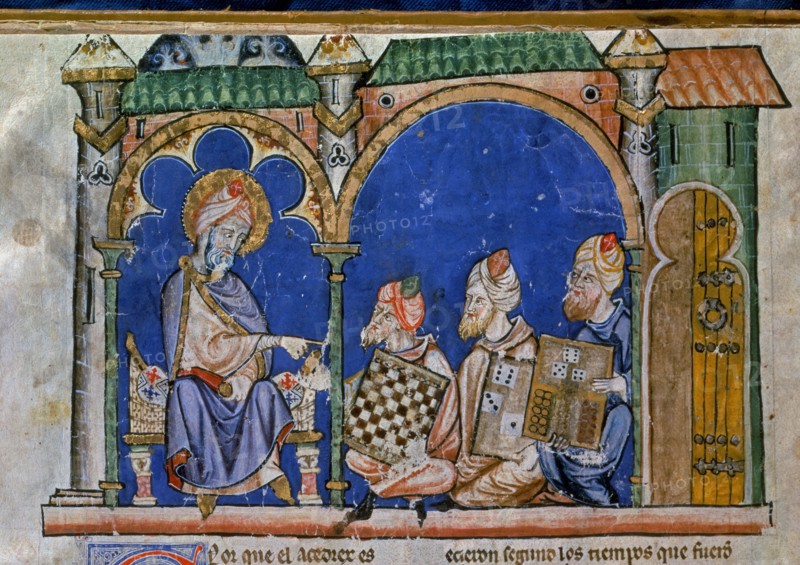 Por que el acedrex es
ecieron segund los tiempos que fuerõ
PHOTO12